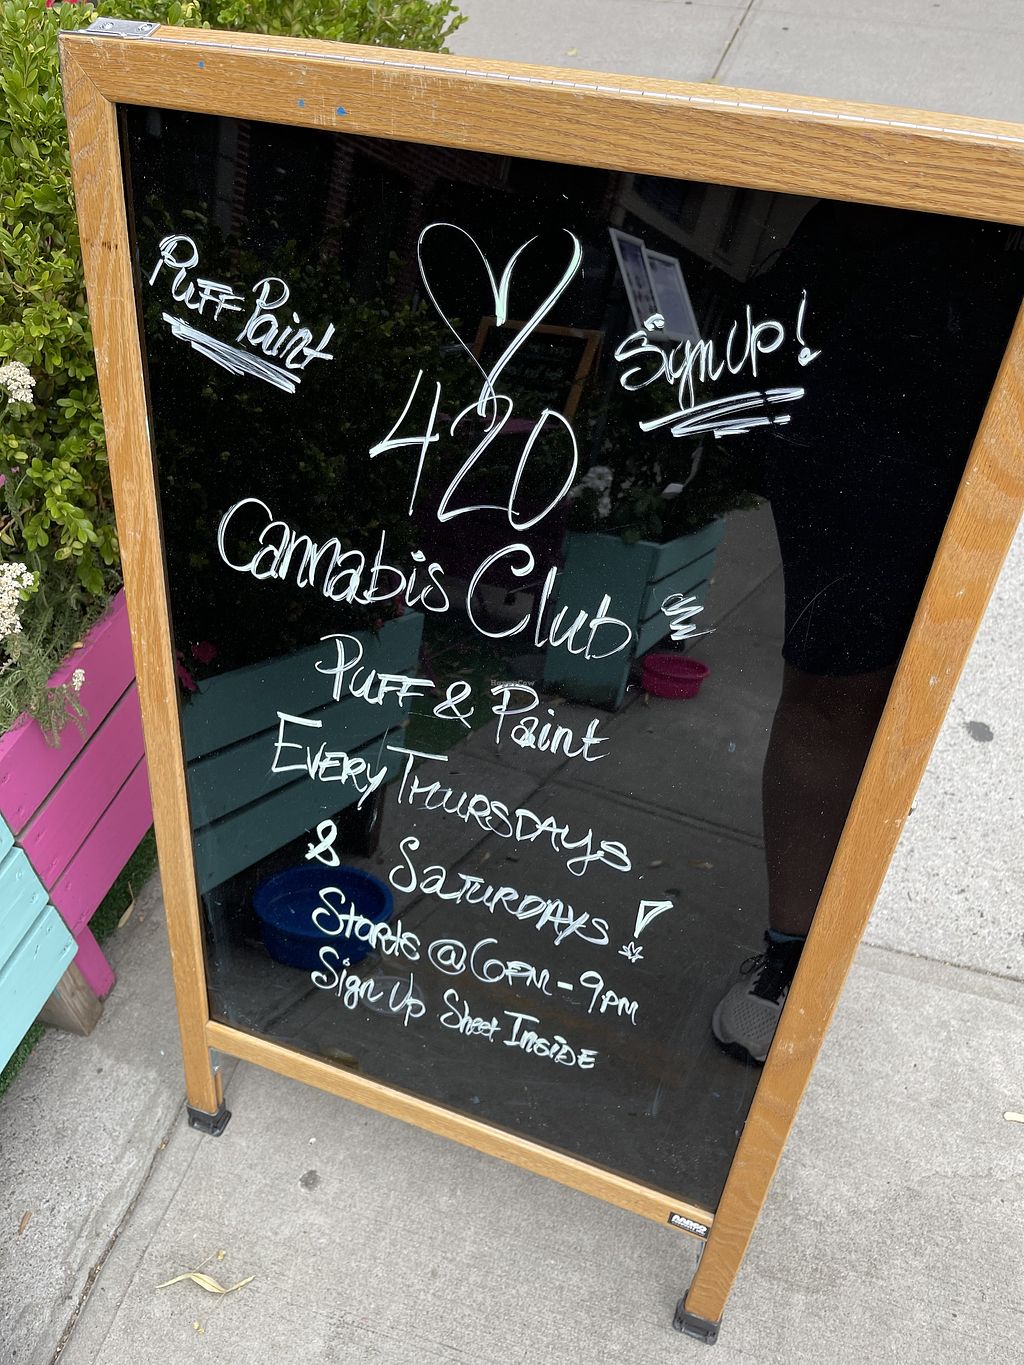 Puff Paint
Sign Up!
420
Cannabis Club
Puff & Paint
Every Thursdays
& Saturdays!
Starts @ 6pm - 9pm
Sign Up Sheet Inside
HappyCow